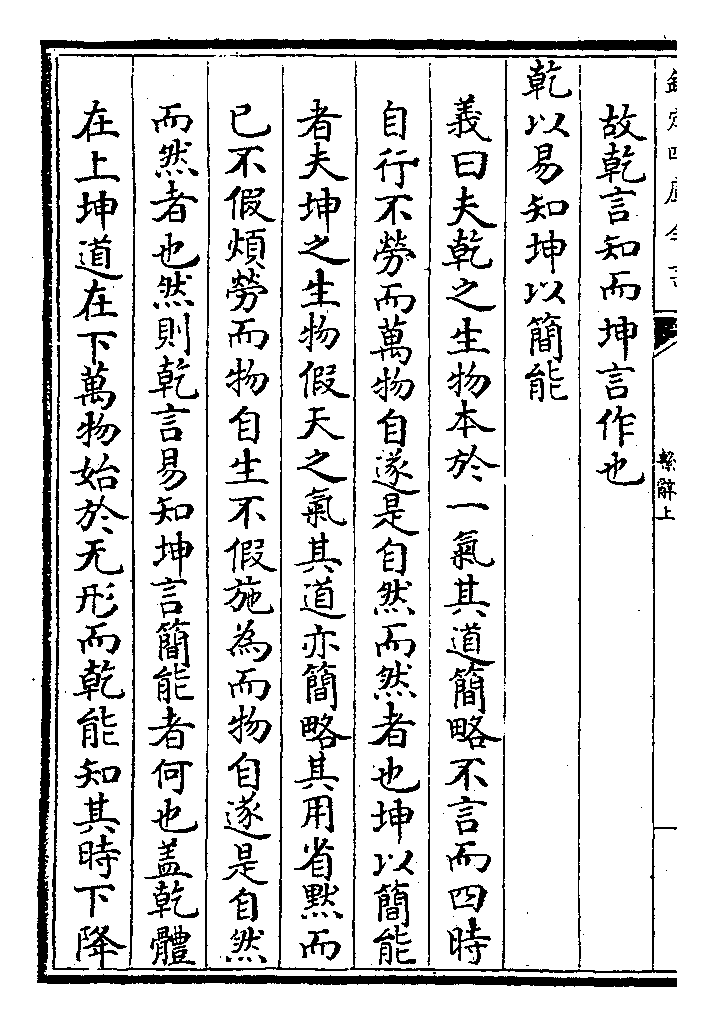 故乾言知而坤言作也
乾以易知坤以簡能
義曰夫乾之生物本於一氣其道簡略不言而四時
自行不勞而萬物自遂是自然而然者也坤以簡能
者夫坤之生物假天之氣其道亦簡略其用省黙而
已不假煩勞而物自生不假施為而物自遂是自然
而然者也然則乾言易知坤言簡能者何也盖乾體
在上坤道在下萬物始於无形而乾能知其時下降
繫辭上